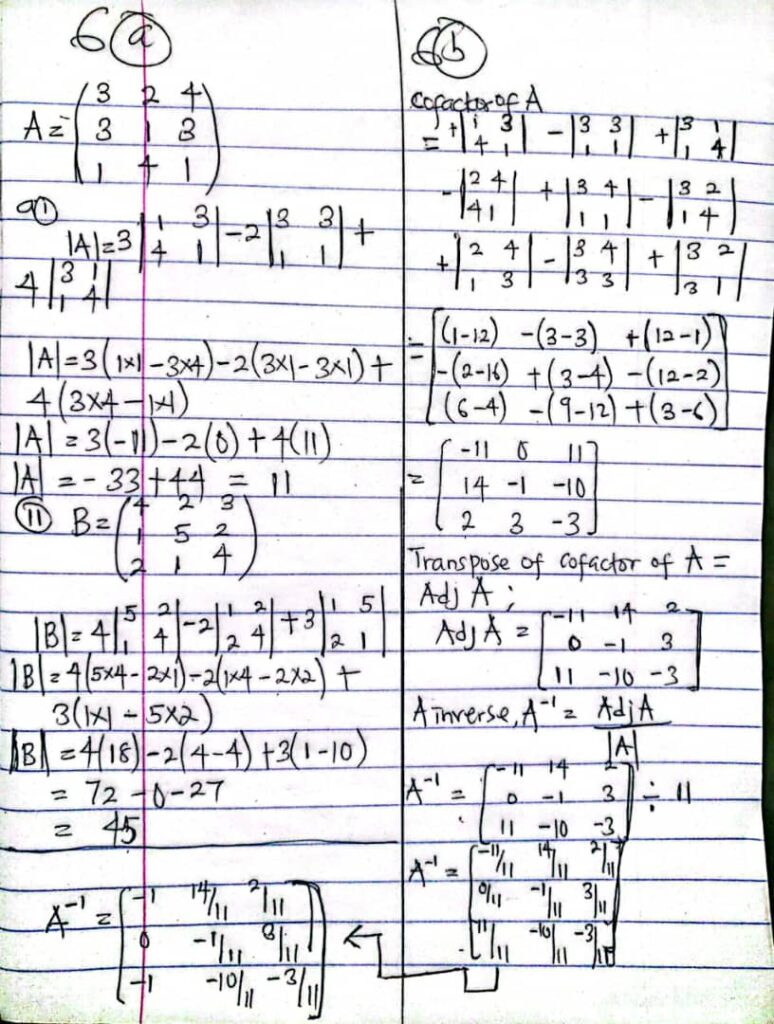 6 (a)
A = (3 2 4
3 1 3
1 4 1)
a(i)
|A| = 3 |1 3
4 1| - 2 |3 3
1 1| +
4 |3 1
1 4|
|A| = 3(1x1 - 3x4) - 2(3x1 - 3x1) +
4(3x4 - 1x1)
|A| = 3(-11) - 2(0) + 4(11)
|A| = -33 + 44 = 11
(ii) B = (4 2 3
1 5 2
2 1 4)
|B| = 4 |5 2
1 4| - 2 |1 2
2 4| + 3 |1 5
2 1|
|B| = 4(5x4 - 2x1) - 2(1x4 - 2x2) +
3(1x1 - 5x2)
|B| = 4(18) - 2(4-4) + 3(1-10)
= 72 - 0 - 27
= 45
A⁻¹ = (-1 14/11 2/11
0 -1/11 8/11
-1 -10/11 -3/11)
6 (b)
cofactor of A
= +|1 3
4 1| - |3 3
1 1| + |3 1
1 4|
- |2 4
4 1| + |3 4
1 1| - |3 2
1 4|
+ |2 4
1 3| - |3 4
3 3| + |3 2
3 1|
= [(1-12) -(3-3) +(12-1)
-(2-16) +(3-4) -(12-2)
(6-4) -(9-12) +(3-6)]
= [-11 0 11
14 -1 -10
2 3 -3]
Transpose of cofactor of A =
Adj A ;
Adj A = [-11 14 2
0 -1 3
11 -10 -3]
A inverse, A⁻¹ = Adj A
|A|
A⁻¹ = [-11 14 2
0 -1 3
11 -10 -3] ÷ 11
A⁻¹ = [-11/11 14/11 2/11
0/11 -1/11 3/11
11/11 -10/11 -3/11]